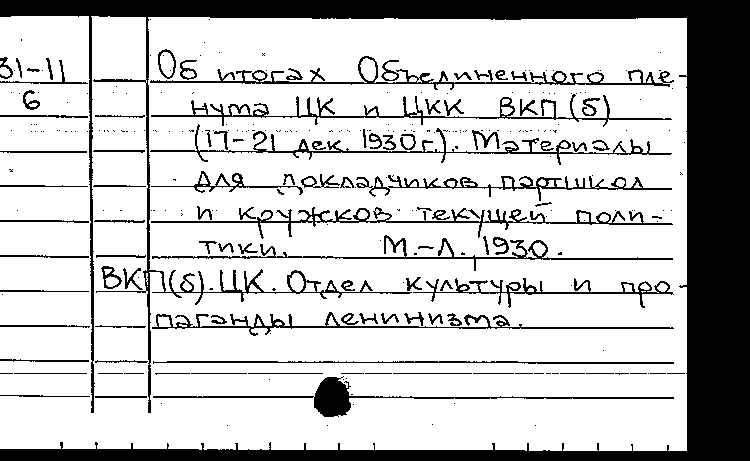 31-11 Об итогах Объединенного пле-
6 нума ЦК и ЦКК ВКП(б)
(17-21 дек. 1930г.). Материалы
для докладчиков, партшкол
и кружков текущей поли-
тики. М.-Л., 1930.
ВКП(б). ЦК. Отдел культуры и про-
паганды ленинизма.